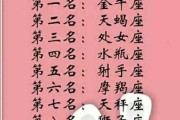 第一名：金牛座
第二名：天蝎座
第三名：处女座
第四名：水瓶座
第五名：射手座
第六名：摩羯座
第七名：天秤座